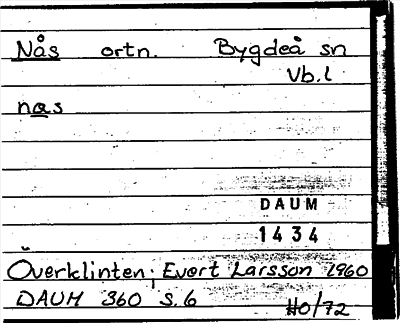 Nås ortn. Bygdeå sn
Vb.l
nas
DAUM
1434
Överklinten; Evert Larsson 1960
DAUM 360 s.6
HO/72